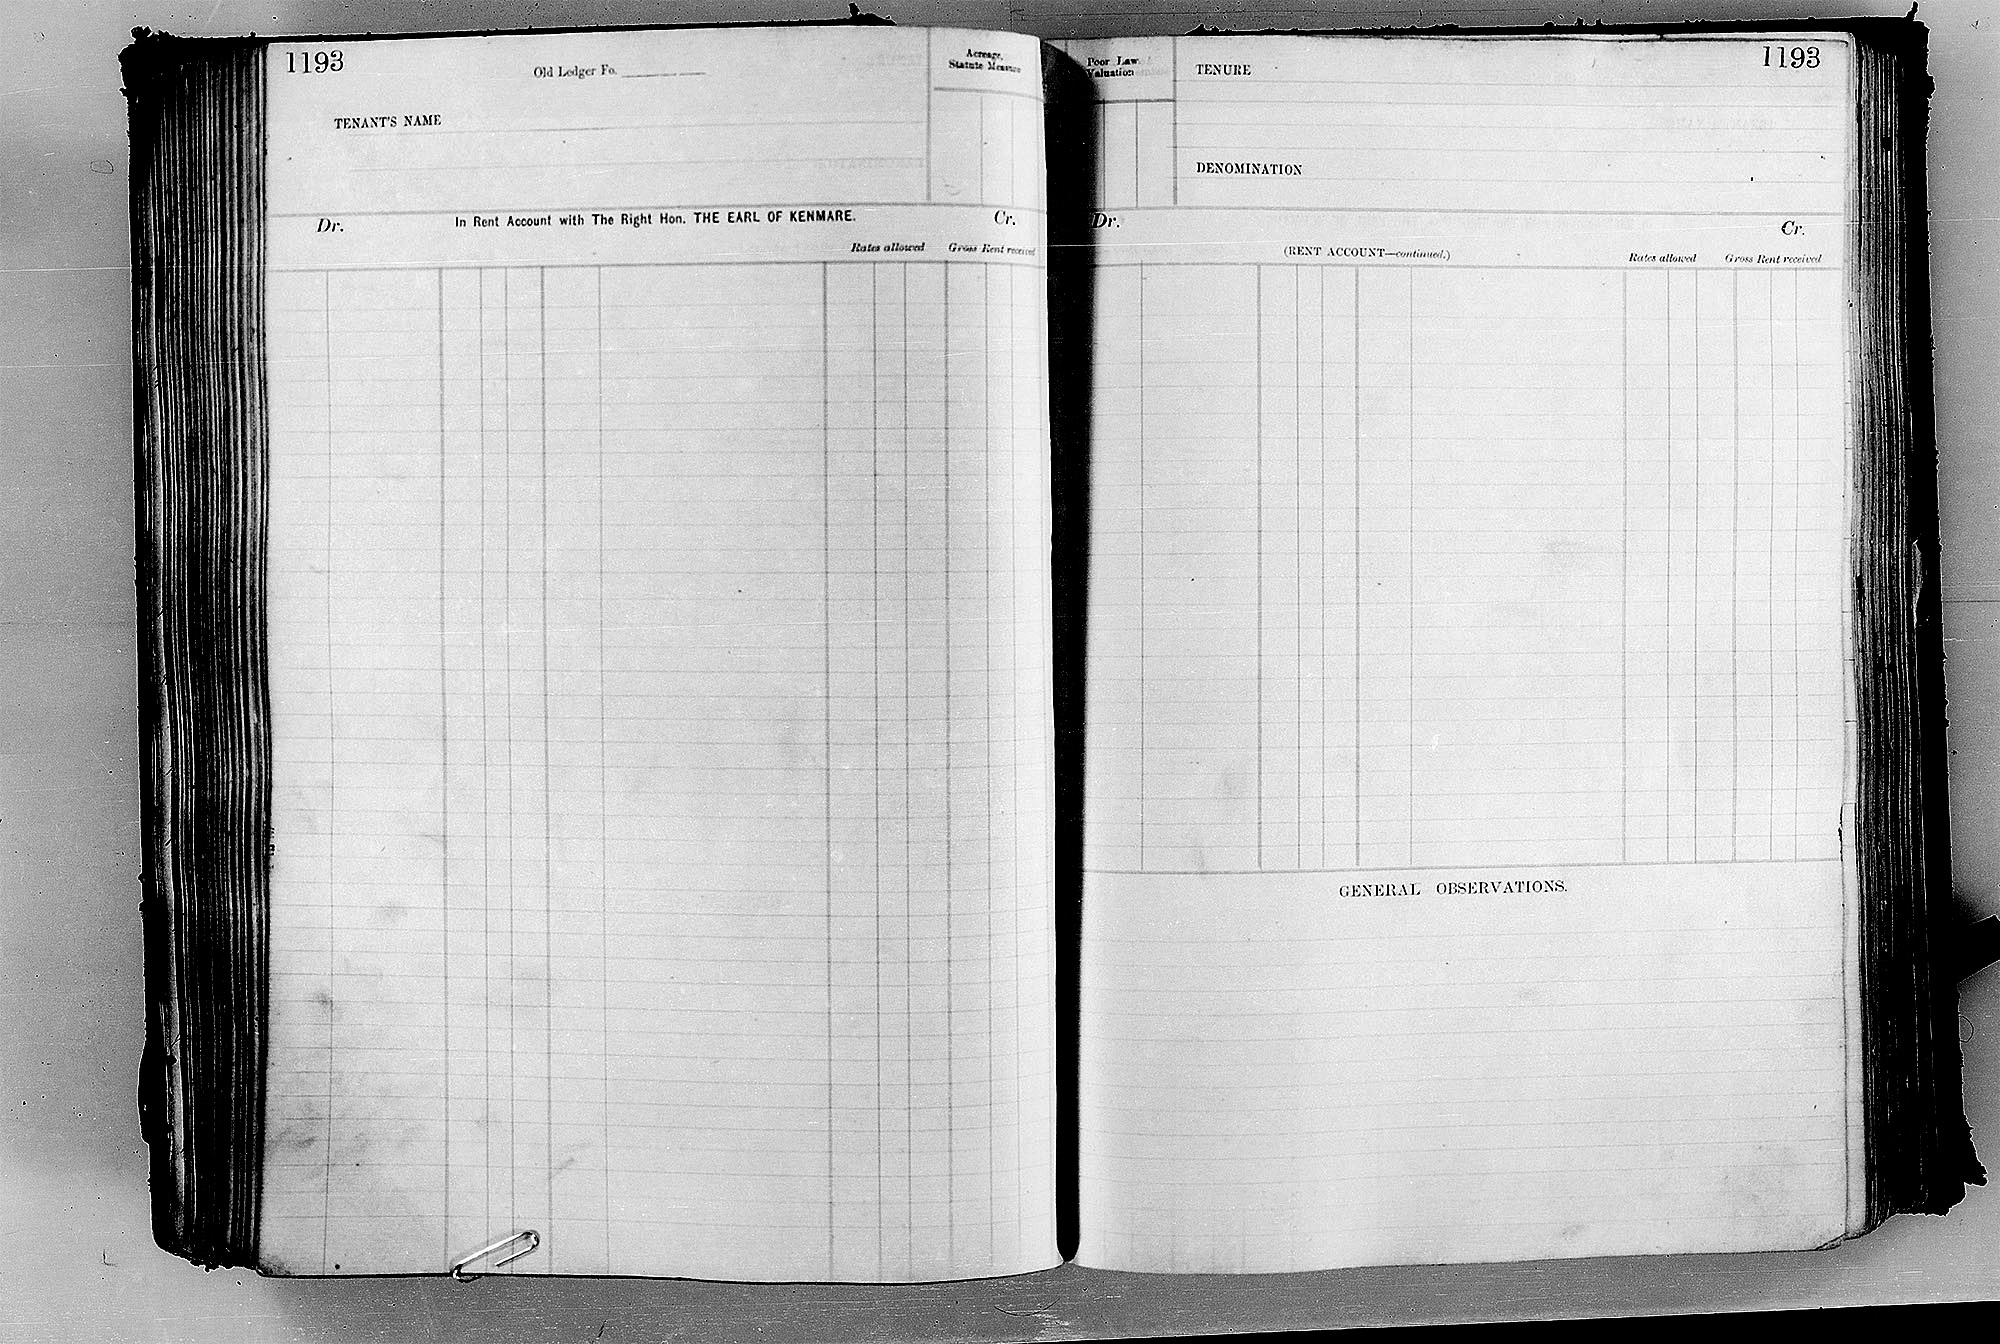 1193
Old Ledger Fo.
Acreage,
Statute Measure
TENANT'S NAME
Dr. In Rent Account with The Right Hon. THE EARL OF KENMARE. Cr.
Rates allowed Gross Rent received
Poor Law
Valuation
TENURE
1193
DENOMINATION
Dr. Cr.
(RENT ACCOUNT—continued.) Rates allowed Gross Rent received
GENERAL OBSERVATIONS.